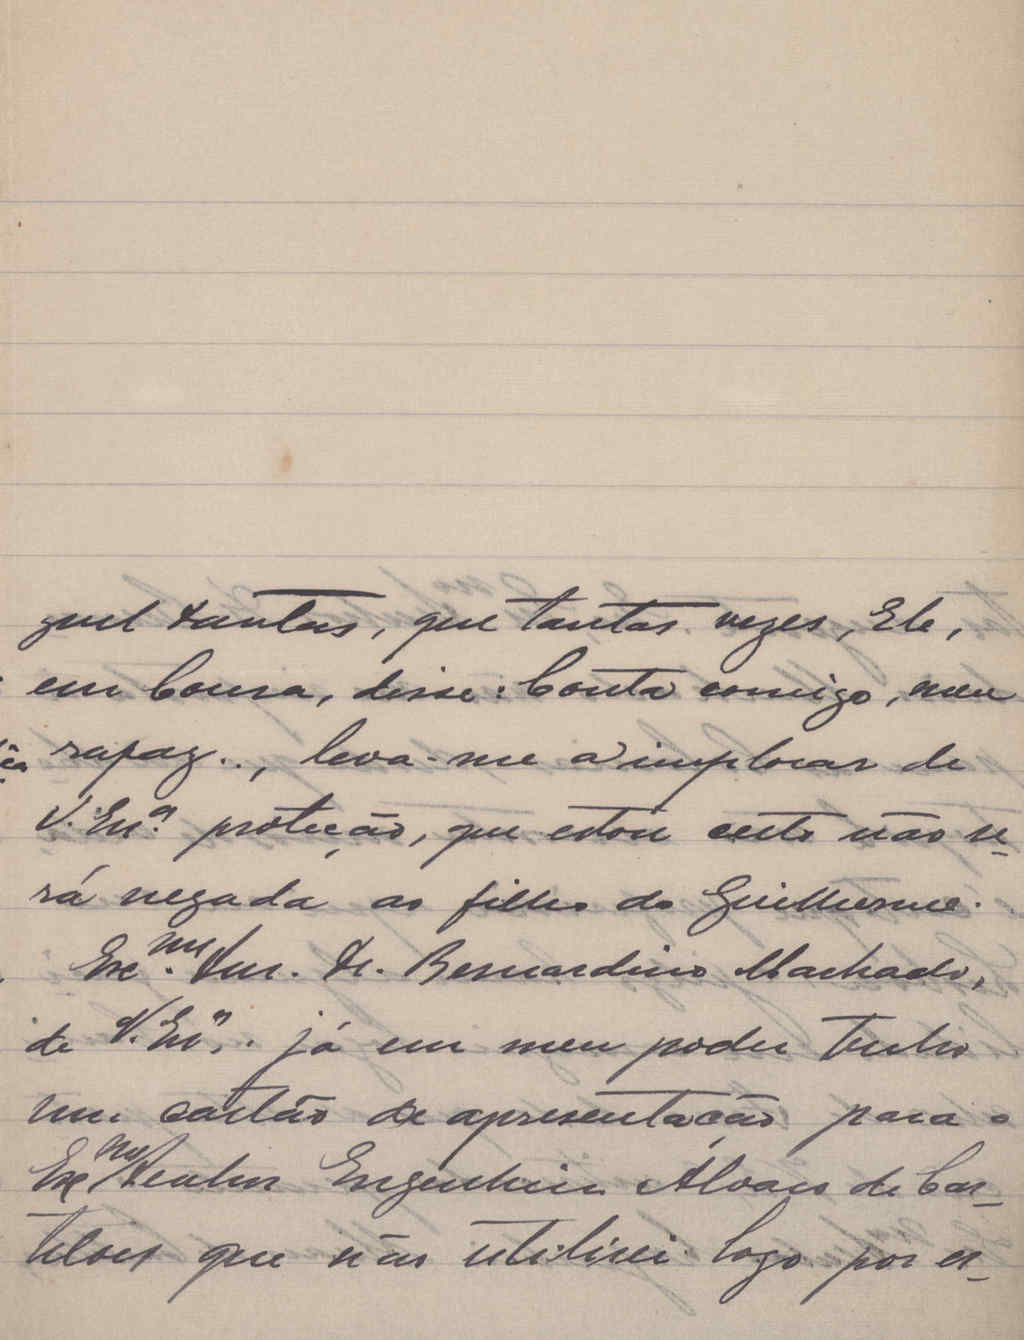 quel tantas, que tantas vezes, Ele,
em Coura, disse: Conta comigo, meu
rapaz.., leva-me a implorar de
V. Exª. proteção, que estou certo não se-
rá negada ao filho do Guilherme.
Exmo. Snr. Dr. Bernardino Machado,
de V. Exª,. já em meu poder tenho
um cartão de apresentação para o
Exmo Senhor Engenheiro Alvaro de Cas-
telões que não utilisei logo por es-